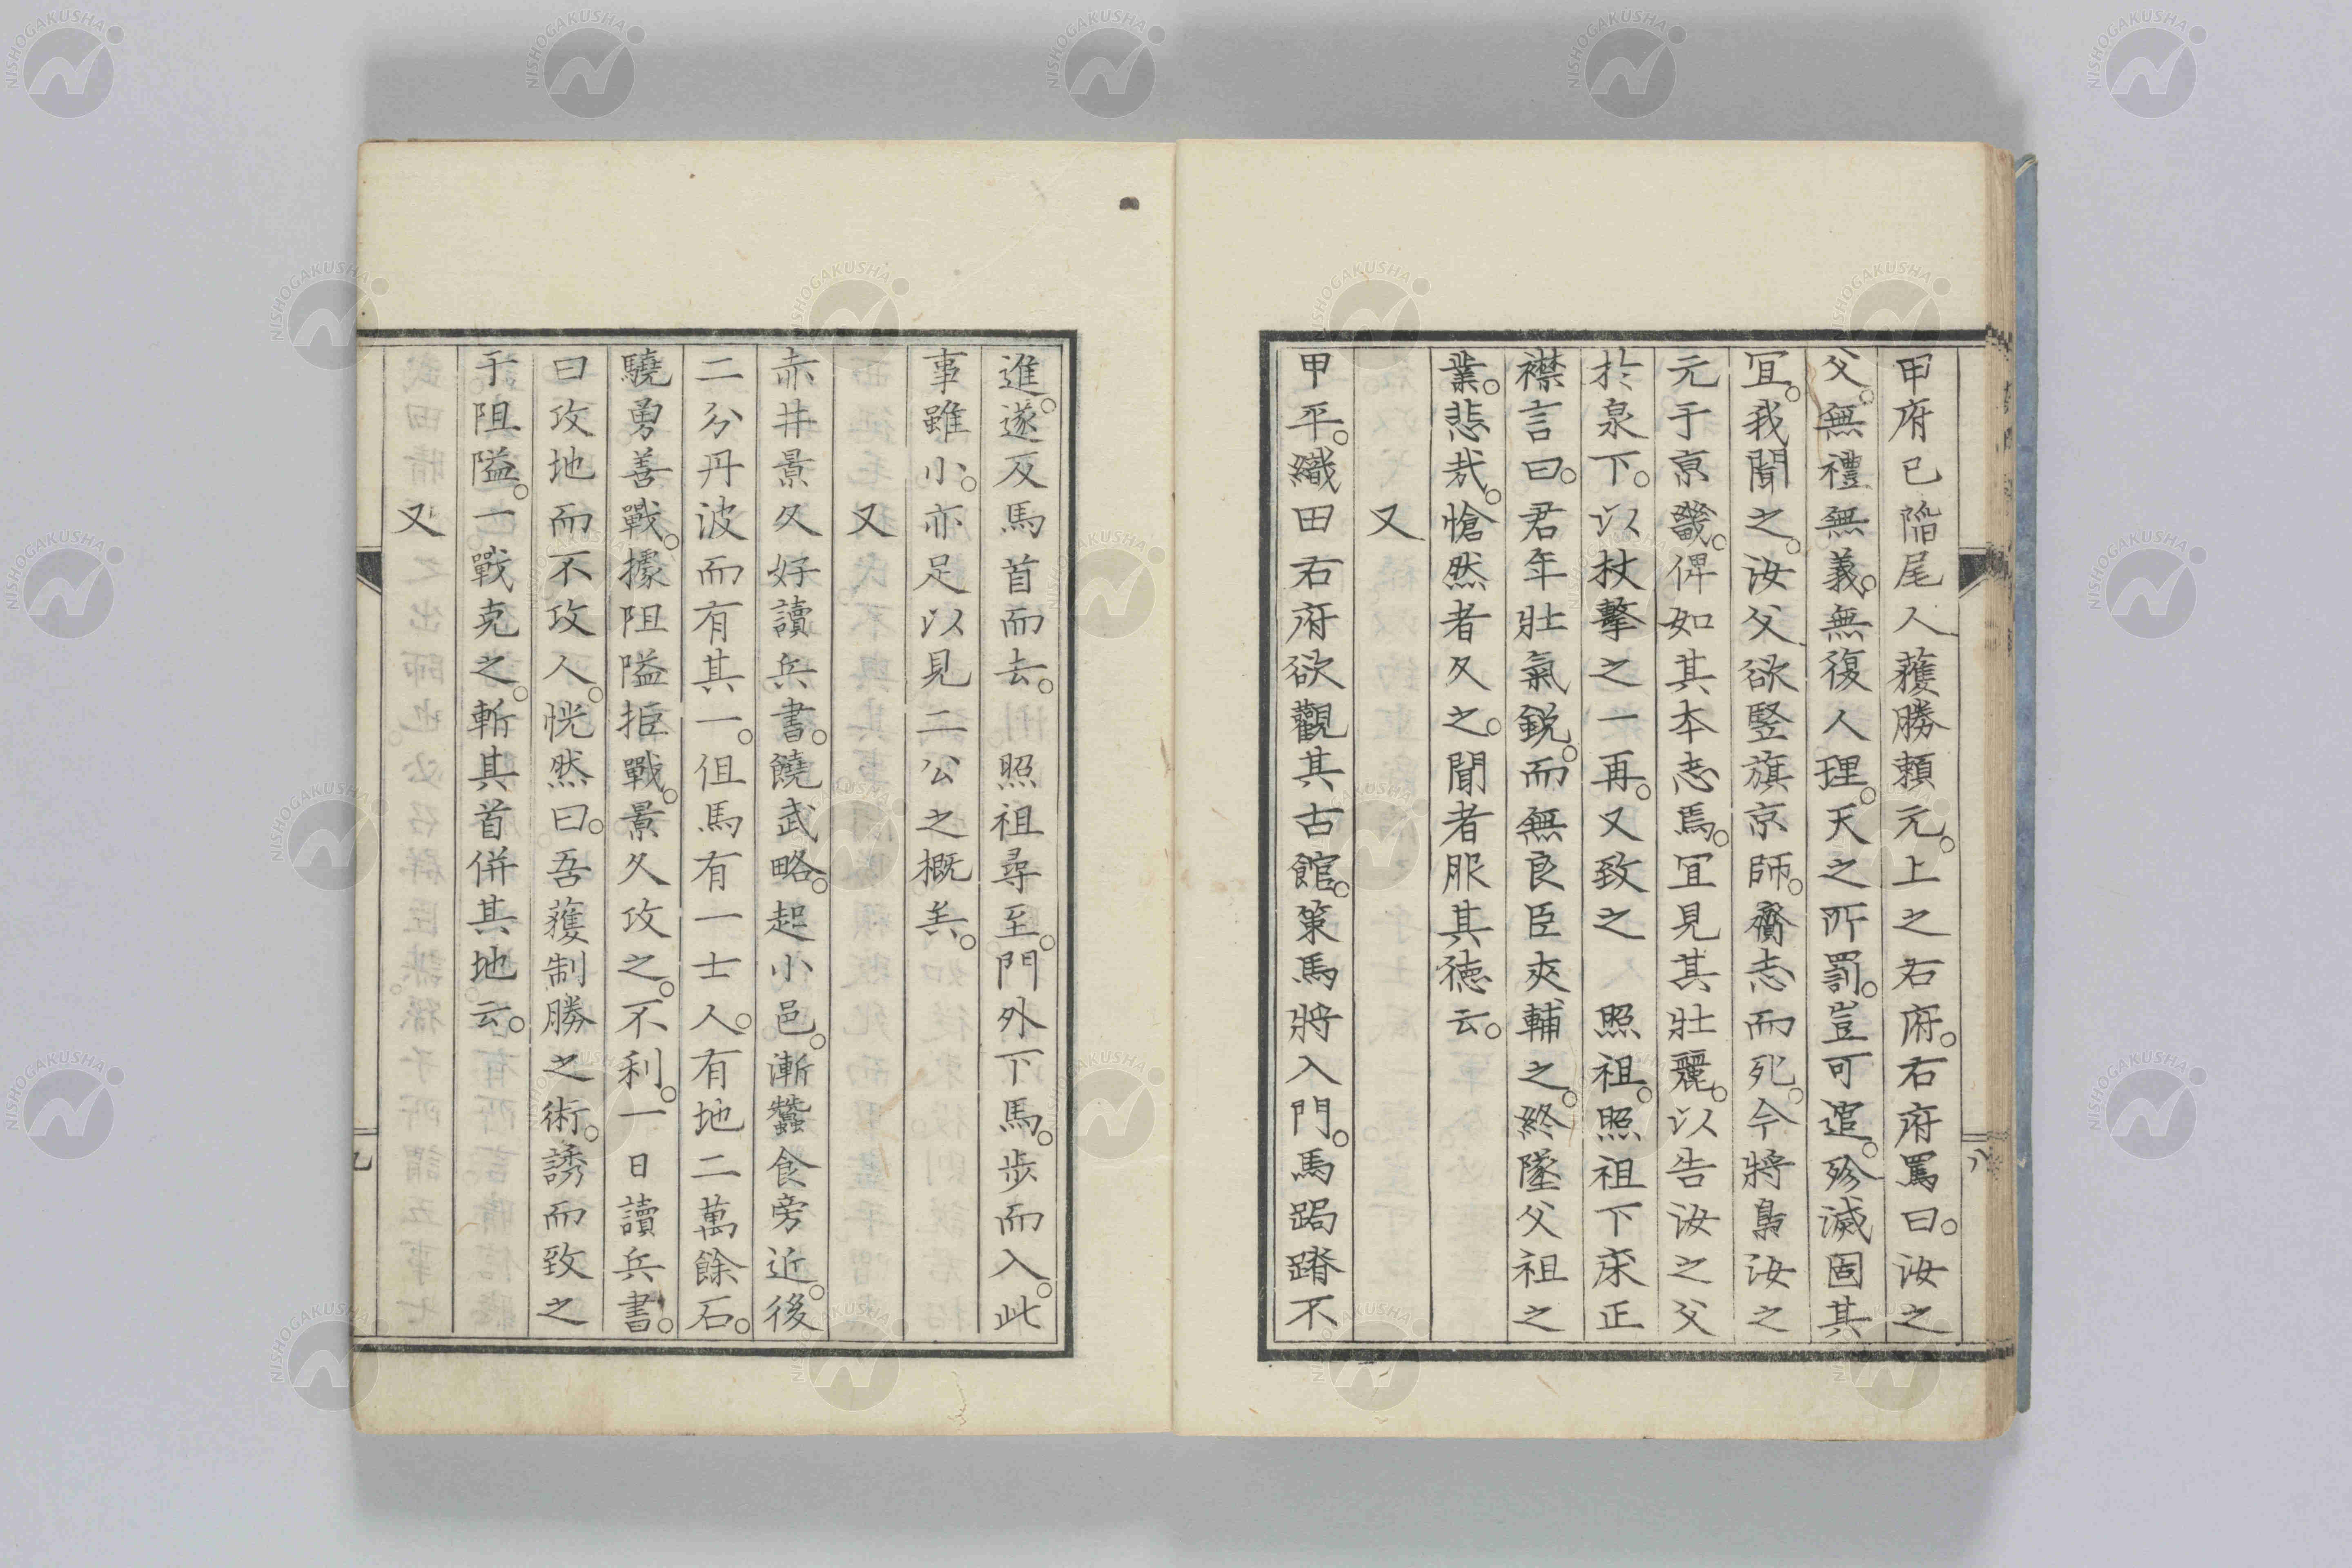 甲府已陷尾人蒦勝頼元。上之右府。右府罵曰。汝之
父。無禮無義。無復人理。天之所罰。豈可逭。殄滅固其
冝。我聞之。汝父欲竪旗京師。齎志而死。今將梟汝之
元于亰畿。俾如其本志焉。冝見其壯麗。以告汝之父
於泉下。以杖擊之一再。又致之　照祖。照祖下床正
襟言曰。君年壯氣鋭。而無良臣夾輔之。終墜父祖之
業。悲哉。愴然者久之。聞者服其徳云。
又
甲平。織田右府欲觀其古館。策馬將入門。馬跼蹐不
進。遂反馬首而去。　照祖尋至。門外下馬。歩而入。此
事雖小。亦足以見二公之概矣。
又
赤井景久好讀兵書。饒武略。起小邑。漸蠶食旁近。後
二分丹波而有其一。但馬有一士人。有地二萬餘石。
驍勇善戰。據阻隘拒戰。景久攻之。不利。一日讀兵書。
曰攻地而不攻人。恍然曰。吾蒦制勝之術。誘而致之
于阻隘。一戰克之。斬其首併其地云。
又
八
九
NISHOGAKUSHA